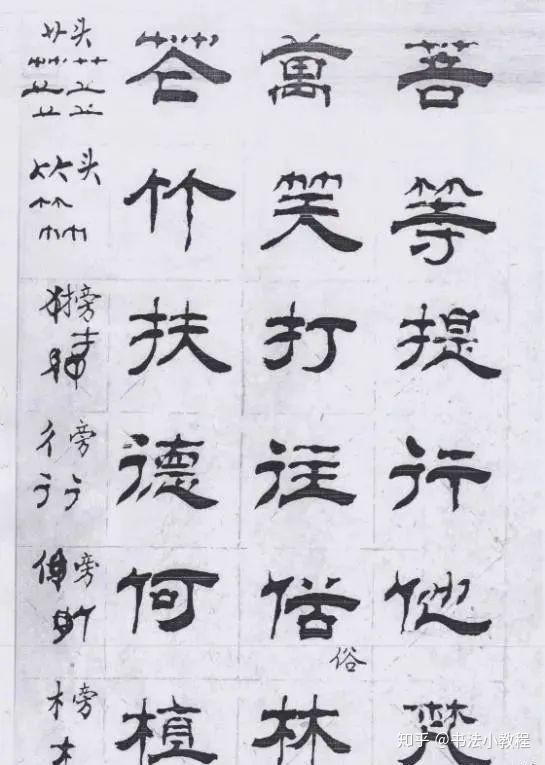 艹头 荅 萬 菩
竹头 竹 笑 等
扌旁 扶 打 提
彳旁 德 往 行
亻旁 何 俗 他
俗
木旁 植 林 樊
知乎 @书法小教程